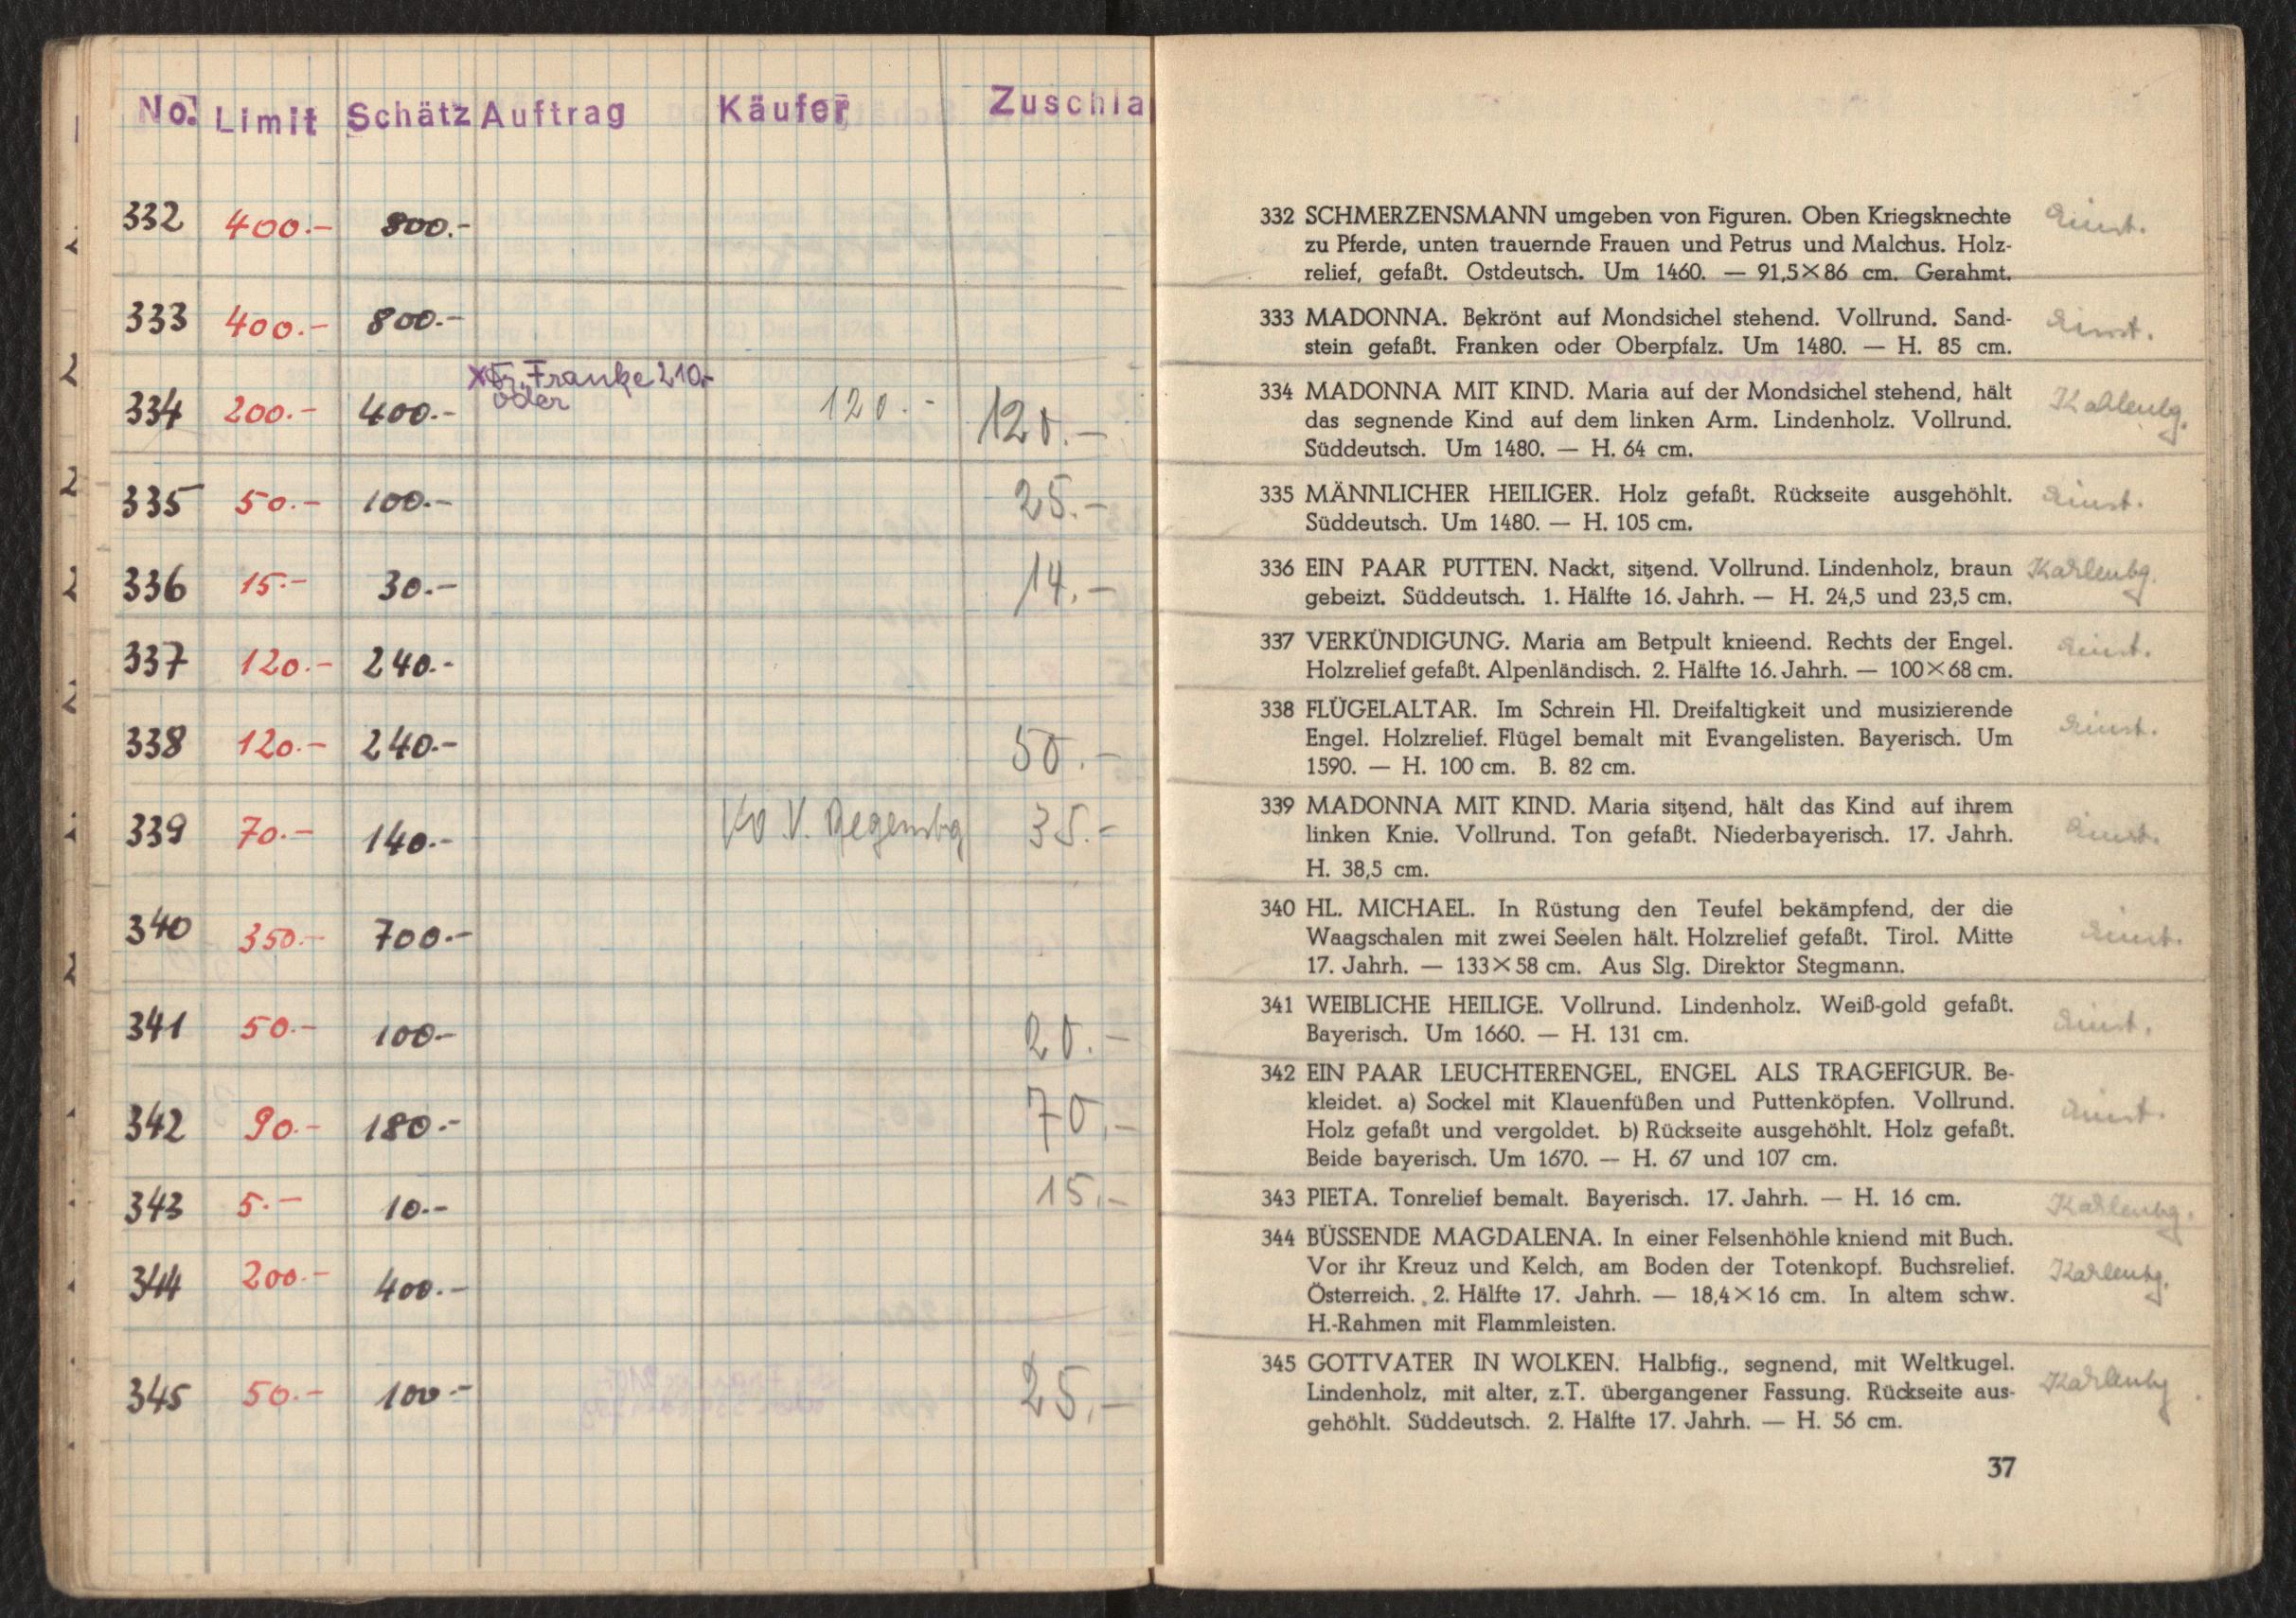 No. Limit Schätz Auftrag Käufer Zuschla
332 400.- 800.-
333 400.- 800.-
xFr. Franke 210.-
oder
334 200.- 400.- 120.- 120.-
335 50.- 100.- 25.-
336 15.- 30.- 14.-
337 120.- 240.-
338 120.- 240.- 50.-
339 70.- 140.- 35.-
340 350.- 700.-
341 50.- 100.- 20.-
342 90.- 180.- 70.-
343 5.- 10.- 15.-
344 200.- 400.-
345 50.- 100.- 25.-
332 SCHMERZENSMANN umgeben von Figuren. Oben Kriegsknechte
zu Pferde, unten trauernde Frauen und Petrus und Malchus. Holz-
relief, gefaßt. Ostdeutsch. Um 1460. — 91,5×86 cm. Gerahmt.
333 MADONNA. Bekrönt auf Mondsichel stehend. Vollrund. Sand-
stein gefaßt. Franken oder Oberpfalz. Um 1480. — H. 85 cm.
334 MADONNA MIT KIND. Maria auf der Mondsichel stehend, hält
das segnende Kind auf dem linken Arm. Lindenholz. Vollrund.
Süddeutsch. Um 1480. — H. 64 cm.
335 MÄNNLICHER HEILIGER. Holz gefaßt. Rückseite ausgehöhlt.
Süddeutsch. Um 1480. — H. 105 cm.
336 EIN PAAR PUTTEN. Nackt, sitzend. Vollrund. Lindenholz, braun
gebeizt. Süddeutsch. 1. Hälfte 16. Jahrh. — H. 24,5 und 23,5 cm.
337 VERKÜNDIGUNG. Maria am Betpult knieend. Rechts der Engel.
Holzrelief gefaßt. Alpenländisch. 2. Hälfte 16. Jahrh. — 100×68 cm.
338 FLÜGELALTAR. Im Schrein Hl. Dreifaltigkeit und musizierende
Engel. Holzrelief. Flügel bemalt mit Evangelisten. Bayerisch. Um
1590. — H. 100 cm. B. 82 cm.
339 MADONNA MIT KIND. Maria sitzend, hält das Kind auf ihrem
linken Knie. Vollrund. Ton gefaßt. Niederbayerisch. 17. Jahrh.
H. 38,5 cm.
340 HL. MICHAEL. In Rüstung den Teufel bekämpfend, der die
Waagschalen mit zwei Seelen hält. Holzrelief gefaßt. Tirol. Mitte
17. Jahrh. — 133×58 cm. Aus Slg. Direktor Stegmann.
341 WEIBLICHE HEILIGE. Vollrund. Lindenholz. Weiß-gold gefaßt.
Bayerisch. Um 1660. — H. 131 cm.
342 EIN PAAR LEUCHTERENGEL, ENGEL ALS TRAGEFIGUR. Be-
kleidet. a) Sockel mit Klauenfüßen und Puttenköpfen. Vollrund.
Holz gefaßt und vergoldet. b) Rückseite ausgehöhlt. Holz gefaßt.
Beide bayerisch. Um 1670. — H. 67 und 107 cm.
343 PIETA. Tonrelief bemalt. Bayerisch. 17. Jahrh. — H. 16 cm.
344 BÜSSENDE MAGDALENA. In einer Felsenhöhle kniend mit Buch.
Vor ihr Kreuz und Kelch, am Boden der Totenkopf. Buchsrelief.
Österreich. 2. Hälfte 17. Jahrh. — 18,4×16 cm. In altem schw.
H.-Rahmen mit Flammleisten.
345 GOTTVATER IN WOLKEN. Halbfig., segnend, mit Weltkugel.
Lindenholz, mit alter, z.T. übergangener Fassung. Rückseite aus-
gehöhlt. Süddeutsch. 2. Hälfte 17. Jahrh. — H. 56 cm.
37